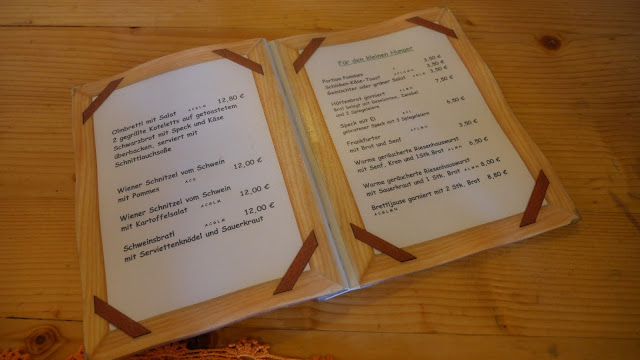 Olmbrettl mit Salat ACGLM 12,80 €
2 gegrillte Koteletts auf getoastetem
Schwarzbrot mit Speck und Käse
überbacken, serviert mit
Schnittlauchsoße
Wiener Schnitzel vom Schwein 12,00 €
mit Pommes ACG
Wiener Schnitzel vom Schwein 12,00 €
mit Kartoffelsalat ACGLM
Schweinsbratl 12,00 €
mit Serviettenknödel und Sauerkraut
Für den kleinen Hunger
Portion Pommes 3,50 €
Schinken-Käse-Toast 3,50 €
Gemischter oder grüner Salat 3,50 €
Hüttenbrot garniert 7,50 €
Brot belegt mit
und 2 Spiegeleiern
Speck mit Ei 6,50 €
gebratener Speck mit 3 Spiegeleiern
Frankfurter 3,50 €
mit Brot und Senf
Warme geräucherte Riesenhauswurst
mit Senf, Kren und 1Stk.Brot ALMN 6,50 €
Warme geräucherte Riesenhauswurst
mit Sauerkraut und 1 Stk. Brot ALMN 8,00 €
Brettljause garniert mit 2 Stk. Brot 8,80 €
ACGLMN